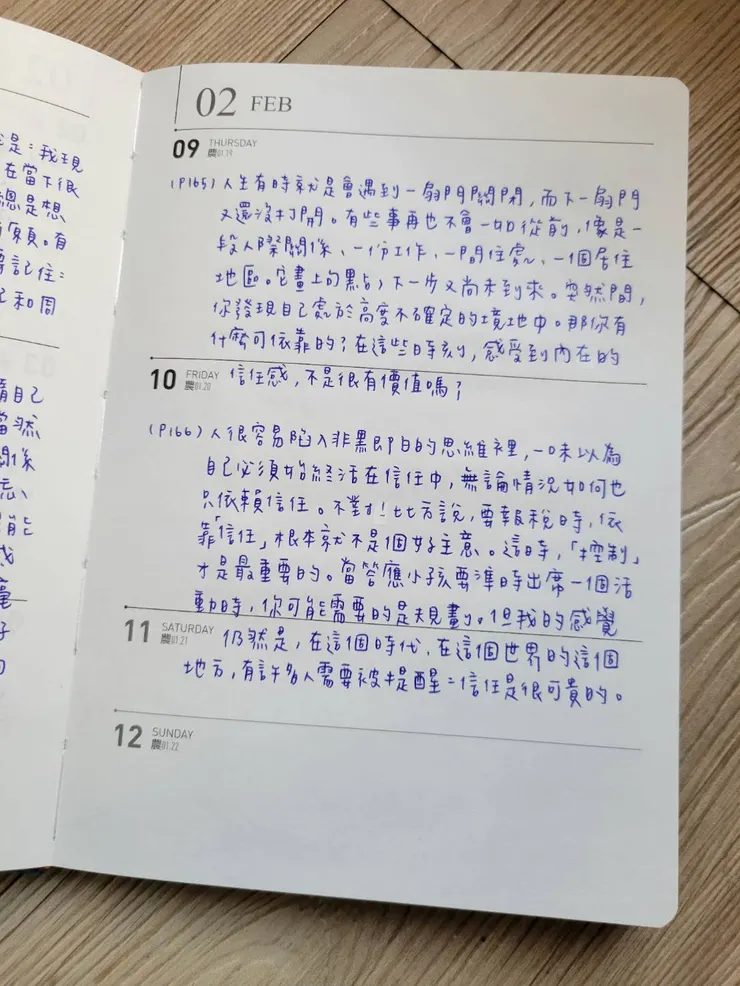 是:我現
在當下很
總是想
有
要記住:
己和周
02 FEB
09 THURSDAY
農01.19
(P165)人生有時就是會遇到一扇門關閉,而下一扇門
又還沒打開。有些事再也不會一如從前,像是一
段人際關係、一份工作、一間住處、一個居住
地區。它畫上句點,下一步又尚未到來。突然間,
你發現自己處於高度不確定的境地中。那你有
什麼可依靠的?在這些時刻,感受到內在的
10 FRIDAY 信任感,不是很有價值嗎?
農01.20
(P166)人很容易陷入非黑即白的思維裡,一味以為
自己必須始終活在信任中,無論情況如何也
只依賴信任。不對!比方說,要報稅時,依
靠「信任」根本就不是個好主意。這時,「控制」
才是最重要的。當答應小孩要準時出席一個活
動時,你可能需要的是規劃。但我的感覺
11 SATURDAY 仍然是,在這個時代,在這個世界的這個
農01.21
地方,有許多人需要被提醒:信任是很可貴的。
12 SUNDAY
農01.22
自己
當然
關係
能
感
子